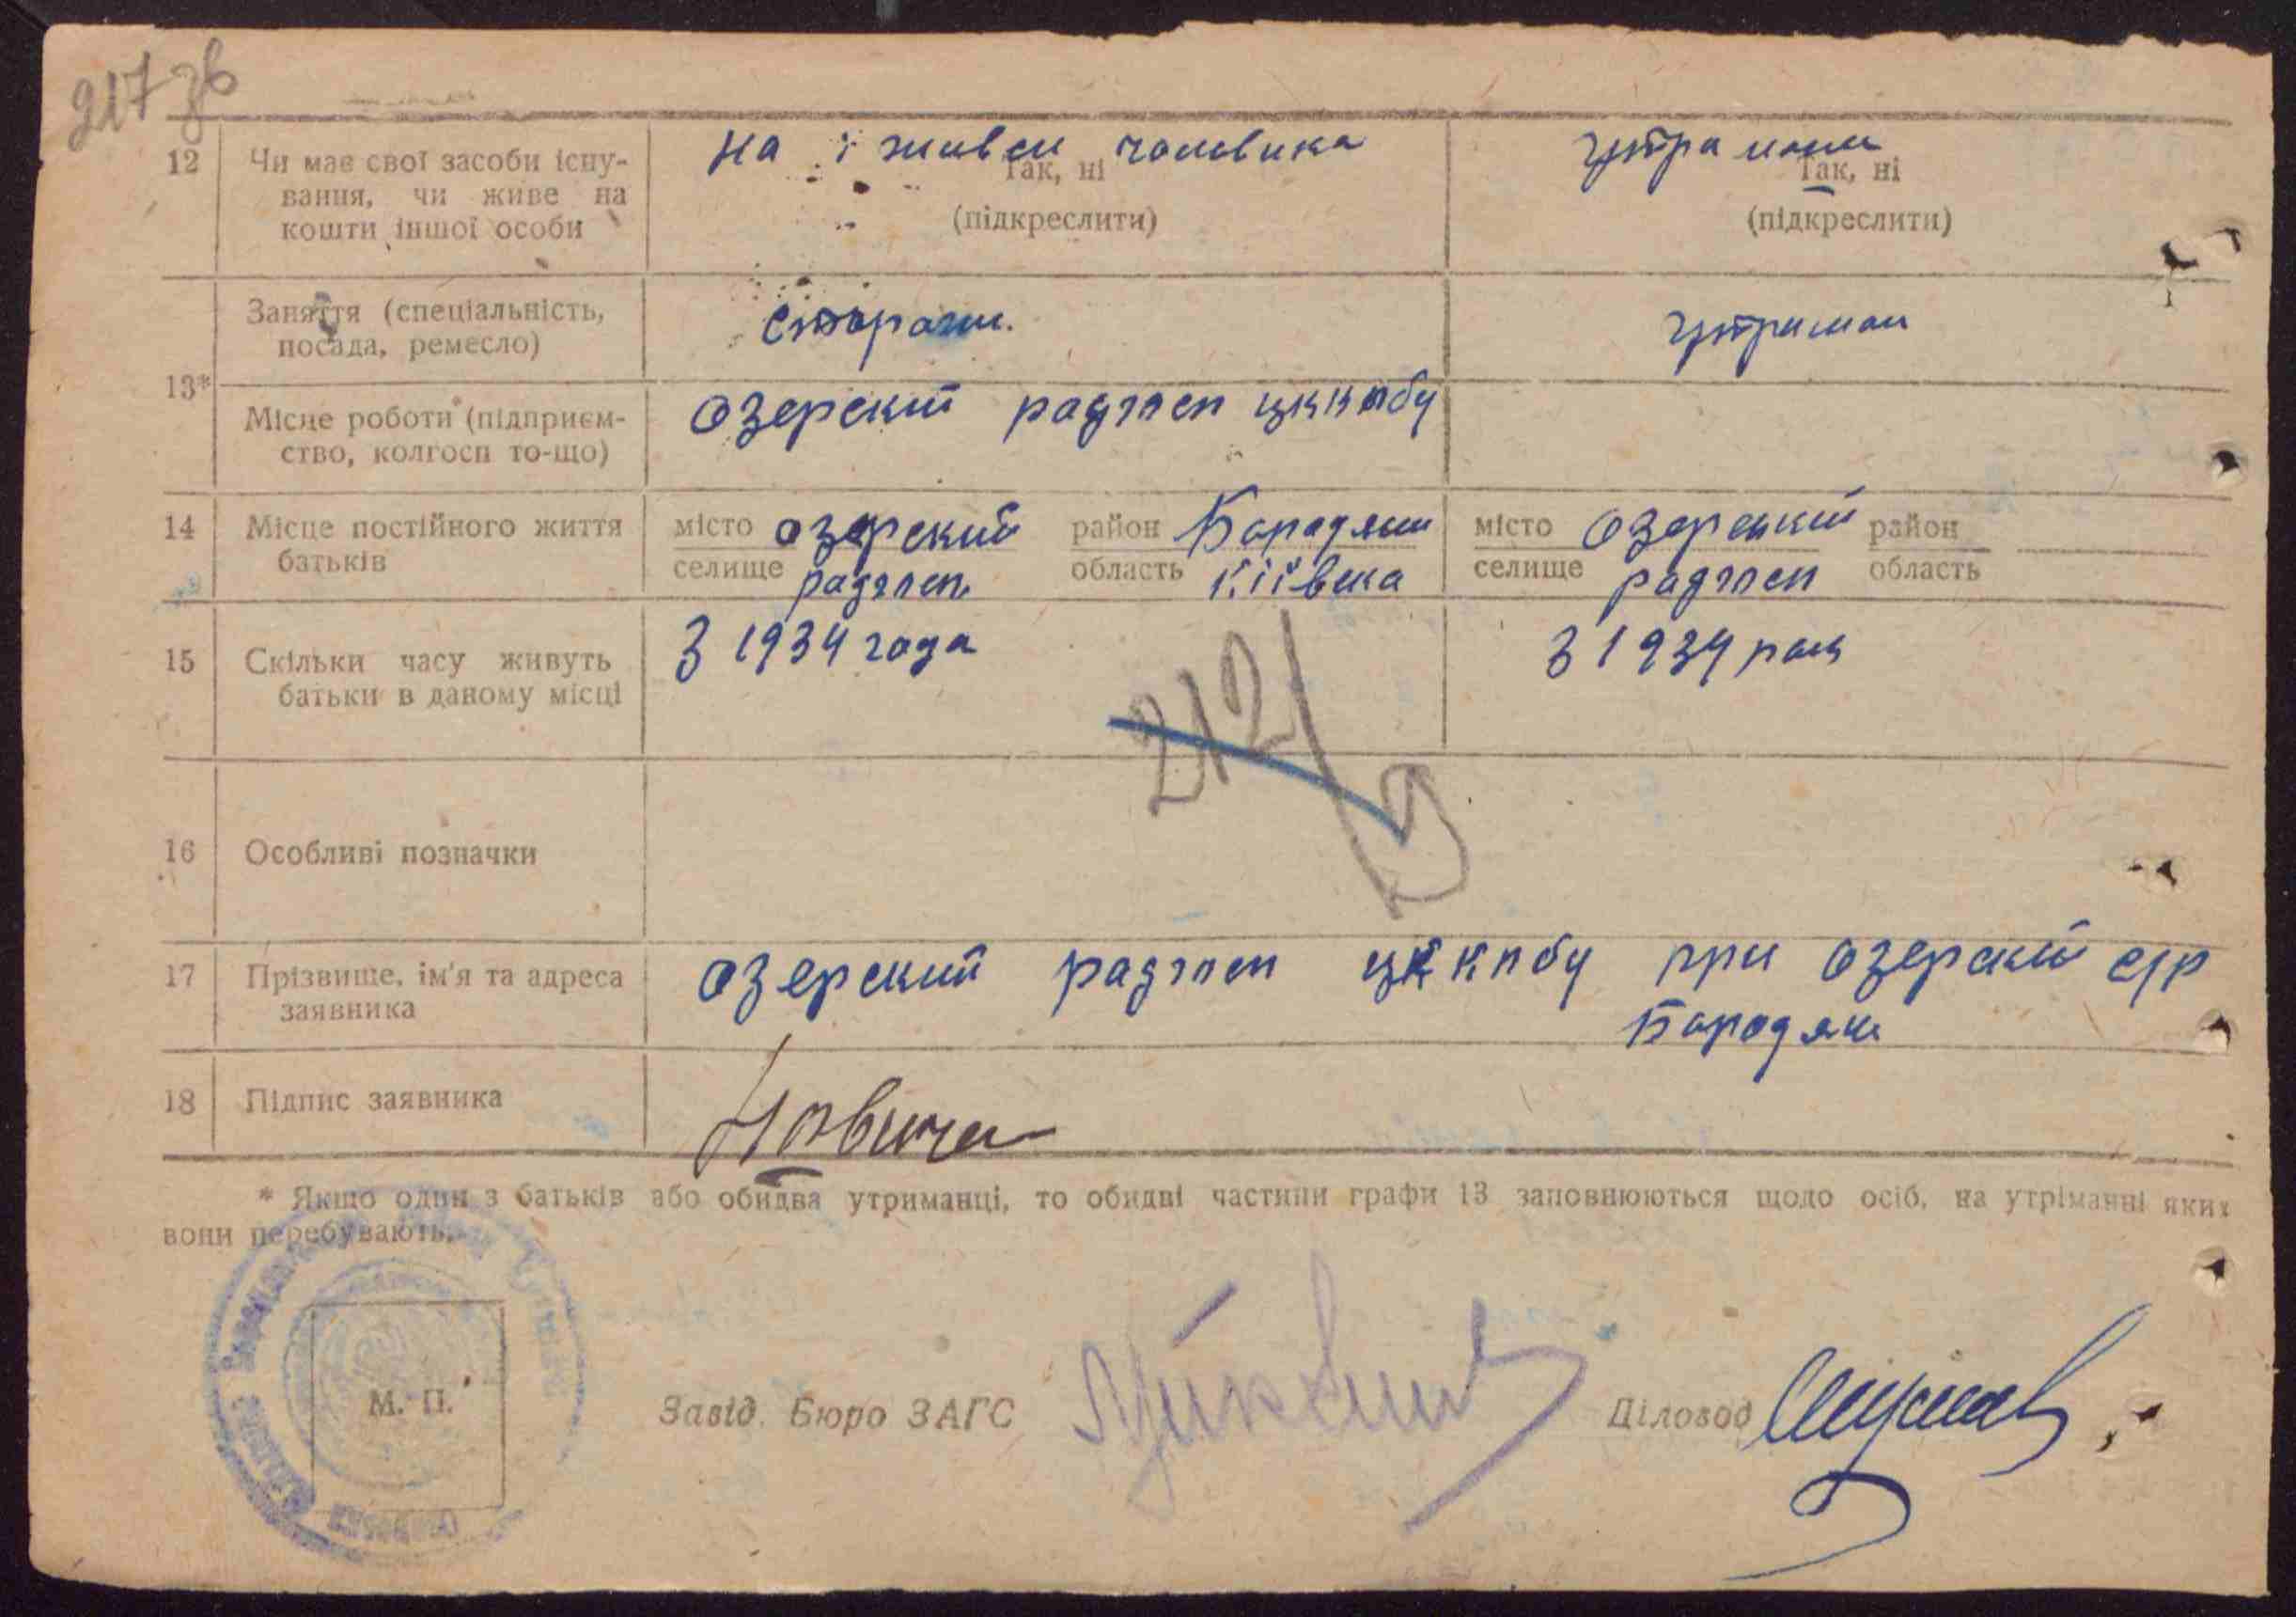 217 зв
12 Чи має свої засоби існу-
вання, чи живе на
кошти іншої особи
на живен чоловика
Так, ні
(підкреслити)
утриман
Так, ні
(підкреслити)
13*
Заняття (спеціальність,
посада, ремесло)
сторож.
утриман
Місце роботи (підприєм-
ство, колгосп то-що)
Озерский радгосп
14 Місце постійного життя
батьків
місто озерский район Бородян
селище радгосп область Київска
місто Озерский район
селище радгосп область
15 Скільки часу живуть
батьки в даному місці
З 1934 года
З 1934 року
212
16 Особливі позначки
17 Прізвище, ім'я та адреса
заявника
озерский радгосп при озерский с/р
Бородян
18 Підпис заявника
* Якщо один з батьків або обидва утриманці, то обидві частини графи 13 заповнюються щодо осіб, на утріманні яких
вони перебувають.
М. П.
Завід. Бюро ЗАГС
Діловод